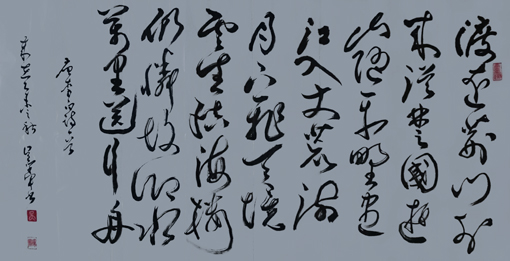 渡遠荊門外
來從楚國遊
山隨平野盡
江入大荒流
月下飛天鏡
雲生結海樓
仍憐故鄉水
萬里送行舟
唐李白詩一首